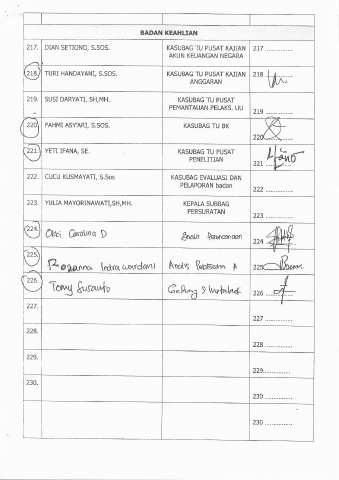 BADAN KEAHLIAN
217. DIAN SETIONO, S.SOS. KASUBAG TU PUSAT KAJIAN 217 ..............
AKUN KEUANGAN NEGARA
218. TURI HANDAYANI, S.SOS. KASUBAG TU PUSAT KAJIAN 218
ANGGARAN
219. SUSI DARYATI, SH,MH. KASUBAG TU PUSAT
PEMANTAUAN PELAKS. UU 219 ..............
220. FAHMI ASY'ARI, S.SOS. KASUBAG TU BK
220
221. YETI IFANA, SE. KASUBAG TU PUSAT
PENELITIAN 221
222. CUCU KUSMAYATI, S.Sos KASUBAG EVALUASI DAN
PELAPORAN badan 222 ..............
223. YULIA MAYORINAWATI,SH,MH. KEPALA SUBBAG
PERSURATAN 223 ..............
224. Okki Carolina D Analis Perencanaan
224
225.
Rozanna Indrawardani Analis A 225
226.
Tomy Susanto Gedung & 226
227.
227 ..............
228.
228 ..............
229.
229..............
230.
230 ..............
230 ..............